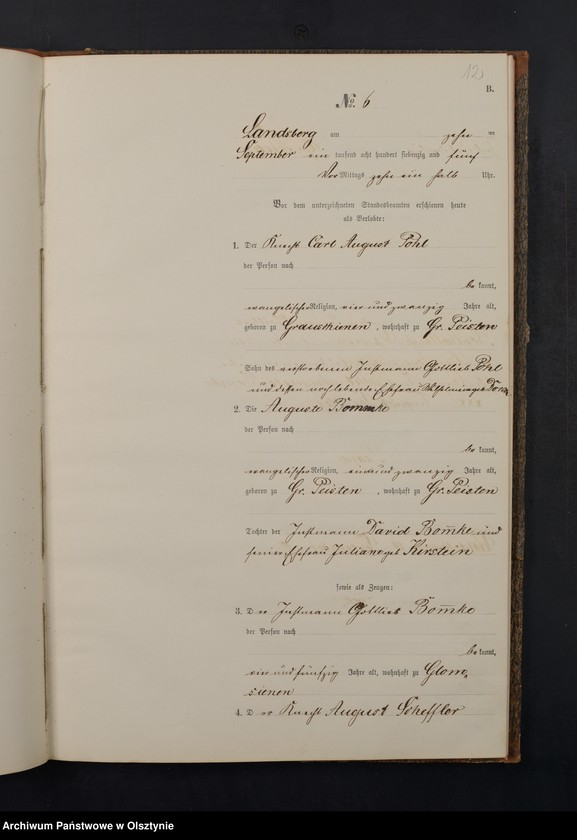 12
B.
No. 6
Landsberg am zehn ten
September ein tausend acht hundert siebenzig und fünf
Vor Mittags zehn ein halb Uhr.
Vor dem unterzeichneten Standesbeamten erschienen heute
als Verlobte:
1. Der Knecht Carl August Pohl
der Person nach
be kannt,
evangelischer Religion, vier und zwanzig Jahre alt,
geboren zu Grauschienen, wohnhaft zu Gr. Peisten
Sohn des verstorbenen Instmann Gottlieb Pohl
und dessen noch lebende Ehefrau Wilhelmine geb
2. Die Auguste Bommke
der Person nach
be kannt,
evangelischer Religion, ein und zwanzig Jahre alt,
geboren zu Gr. Peisten, wohnhaft zu Gr. Peisten
Tochter der Instmann David Bom̄ke und
seiner Ehefrau Juliane geb Kirstein
sowie als Zeugen:
3. D er Instmann Gottlieb Bom̄ke
der Person nach
be kannt,
vier und fünfzig Jahre alt, wohnhaft zu Glom,
sienen
4. D er Knecht August Scheffler
Archiwum Państwowe w Olsztynie